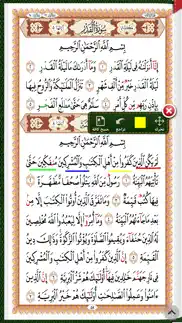 سُورَةُ القَدْرِ
بِسْمِ ٱللَّهِ ٱلرَّحْمَٰنِ ٱلرَّحِيمِ
إِنَّآ أَنزَلْنَٰهُ فِى لَيْلَةِ ٱلْقَدْرِ ۝ وَمَآ أَدْرَىٰكَ مَا لَيْلَةُ ٱلْقَدْرِ
لَيْلَةُ ٱلْقَدْرِ خَيْرٌ مِّنْ أَلْفِ شَهْرٍ ۝ تَنَزَّلُ ٱلْمَلَٰٓئِكَةُ وَٱلرُّوحُ فِيهَا
مِّن كُلِّ أَمْرٍ ۝ سَلَٰمٌ هِىَ حَتَّىٰ
تحريك تراجع مسح كافة
بِسْمِ ٱللَّهِ ٱلرَّحْمَٰنِ ٱلرَّحِيمِ
لَمْ يَكُنِ ٱلَّذِينَ كَفَرُوا۟ مِنْ أَهْلِ ٱلْكِتَٰبِ وَٱلْمُشْرِكِينَ مُنفَكِّينَ حَتَّىٰ
تَأْتِيَهُمُ ٱلْبَيِّنَةُ ۝ رَسُولٌ مِّنَ ٱللَّهِ يَتْلُوا۟ صُحُفًا مُّطَهَّرَةً
فِيهَا كُتُبٌ قَيِّمَةٌ ۝ وَمَا تَفَرَّقَ ٱلَّذِينَ أُوتُوا۟ ٱلْكِتَٰبَ إِلَّا مِنۢ بَعْدِ
مَا جَآءَتْهُمُ ٱلْبَيِّنَةُ ۝ وَمَآ أُمِرُوٓا۟ إِلَّا لِيَعْبُدُوا۟ ٱللَّهَ مُخْلِصِينَ لَهُ
ٱلدِّينَ حُنَفَآءَ وَيُقِيمُوا۟ ٱلصَّلَوٰةَ وَيُؤْتُوا۟ ٱلزَّكَوٰةَ وَذَٰلِكَ دِينُ
ٱلْقَيِّمَةِ ۝ إِنَّ ٱلَّذِينَ كَفَرُوا۟ مِنْ أَهْلِ ٱلْكِتَٰبِ وَٱلْمُشْرِكِينَ فِى نَارِ
جَهَنَّمَ خَٰلِدِينَ فِيهَآ أُو۟لَٰٓئِكَ هُمْ شَرُّ ٱلْبَرِيَّةِ ۝ إِنَّ ٱلَّذِينَ
ءَامَنُوا۟ وَعَمِلُوا۟ ٱلصَّٰلِحَٰتِ أُو۟لَٰٓئِكَ هُمْ خَيْرُ ٱلْبَرِيَّةِ